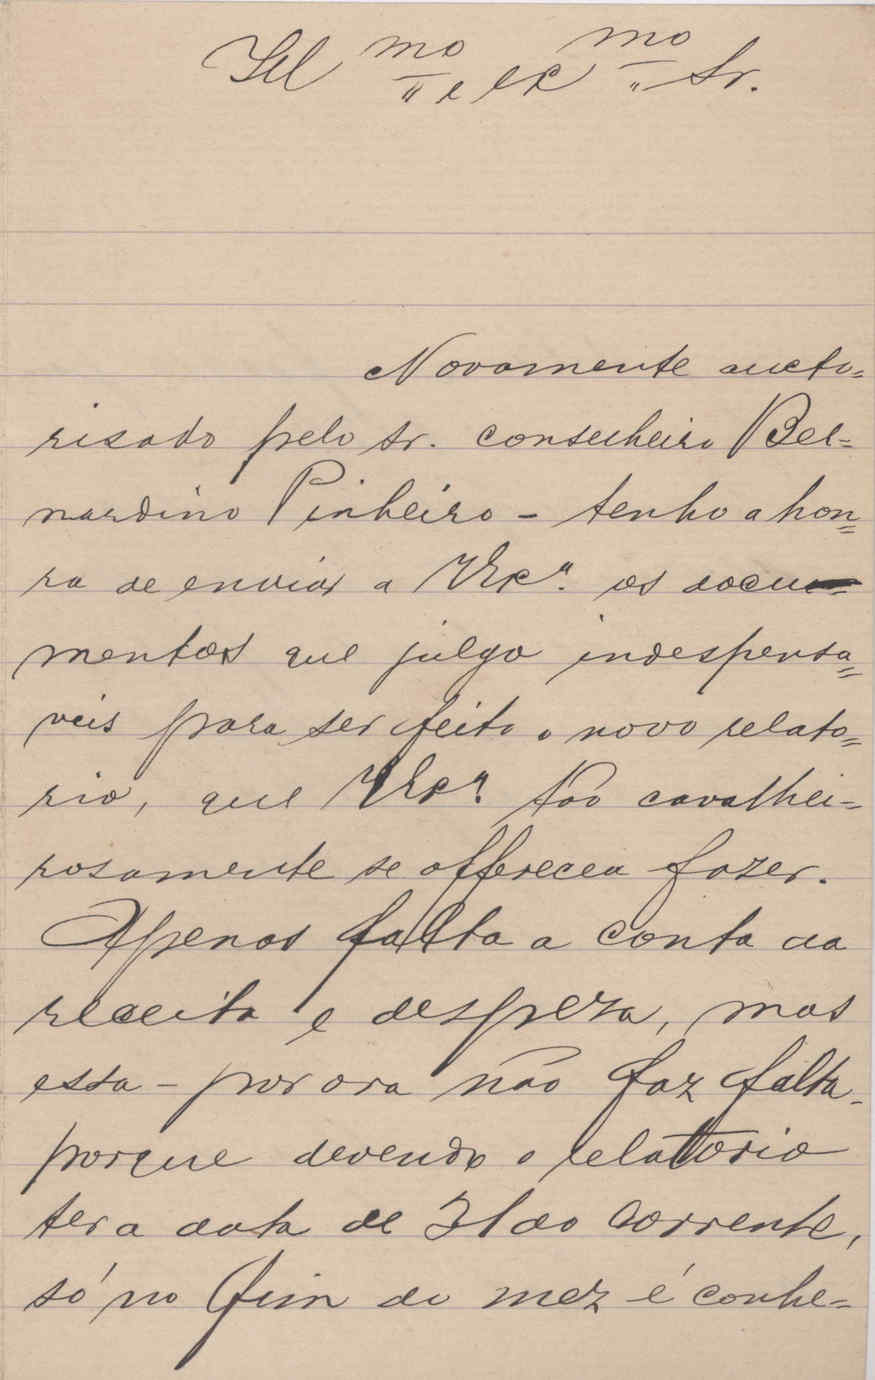 Ill mo e ex mo Sr.
Novamente aucto=
risado pelo sr. conselheiro Ber=
nardino Pinheiro - tenho a hon=
ra de enviar a V Exª. os docu=
mentos que julgo indespensa=
veis para ser feito o novo relato=
rio, que V Exª. tão cavalhei=
rosamente se offereceu fazer.
Apenas falta a conta da
receita e despeza, mas
essa - por ora não faz falta -
porque devendo o relatorio
ter a data de 31 do corrente,
só no fim do mez é conhe=